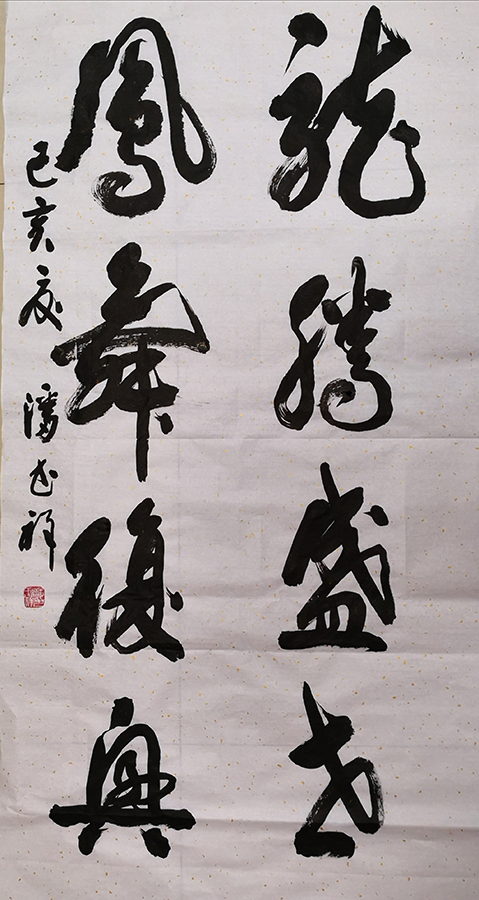 龍騰盛世
鳳舞復興
己亥夏 潘武祥